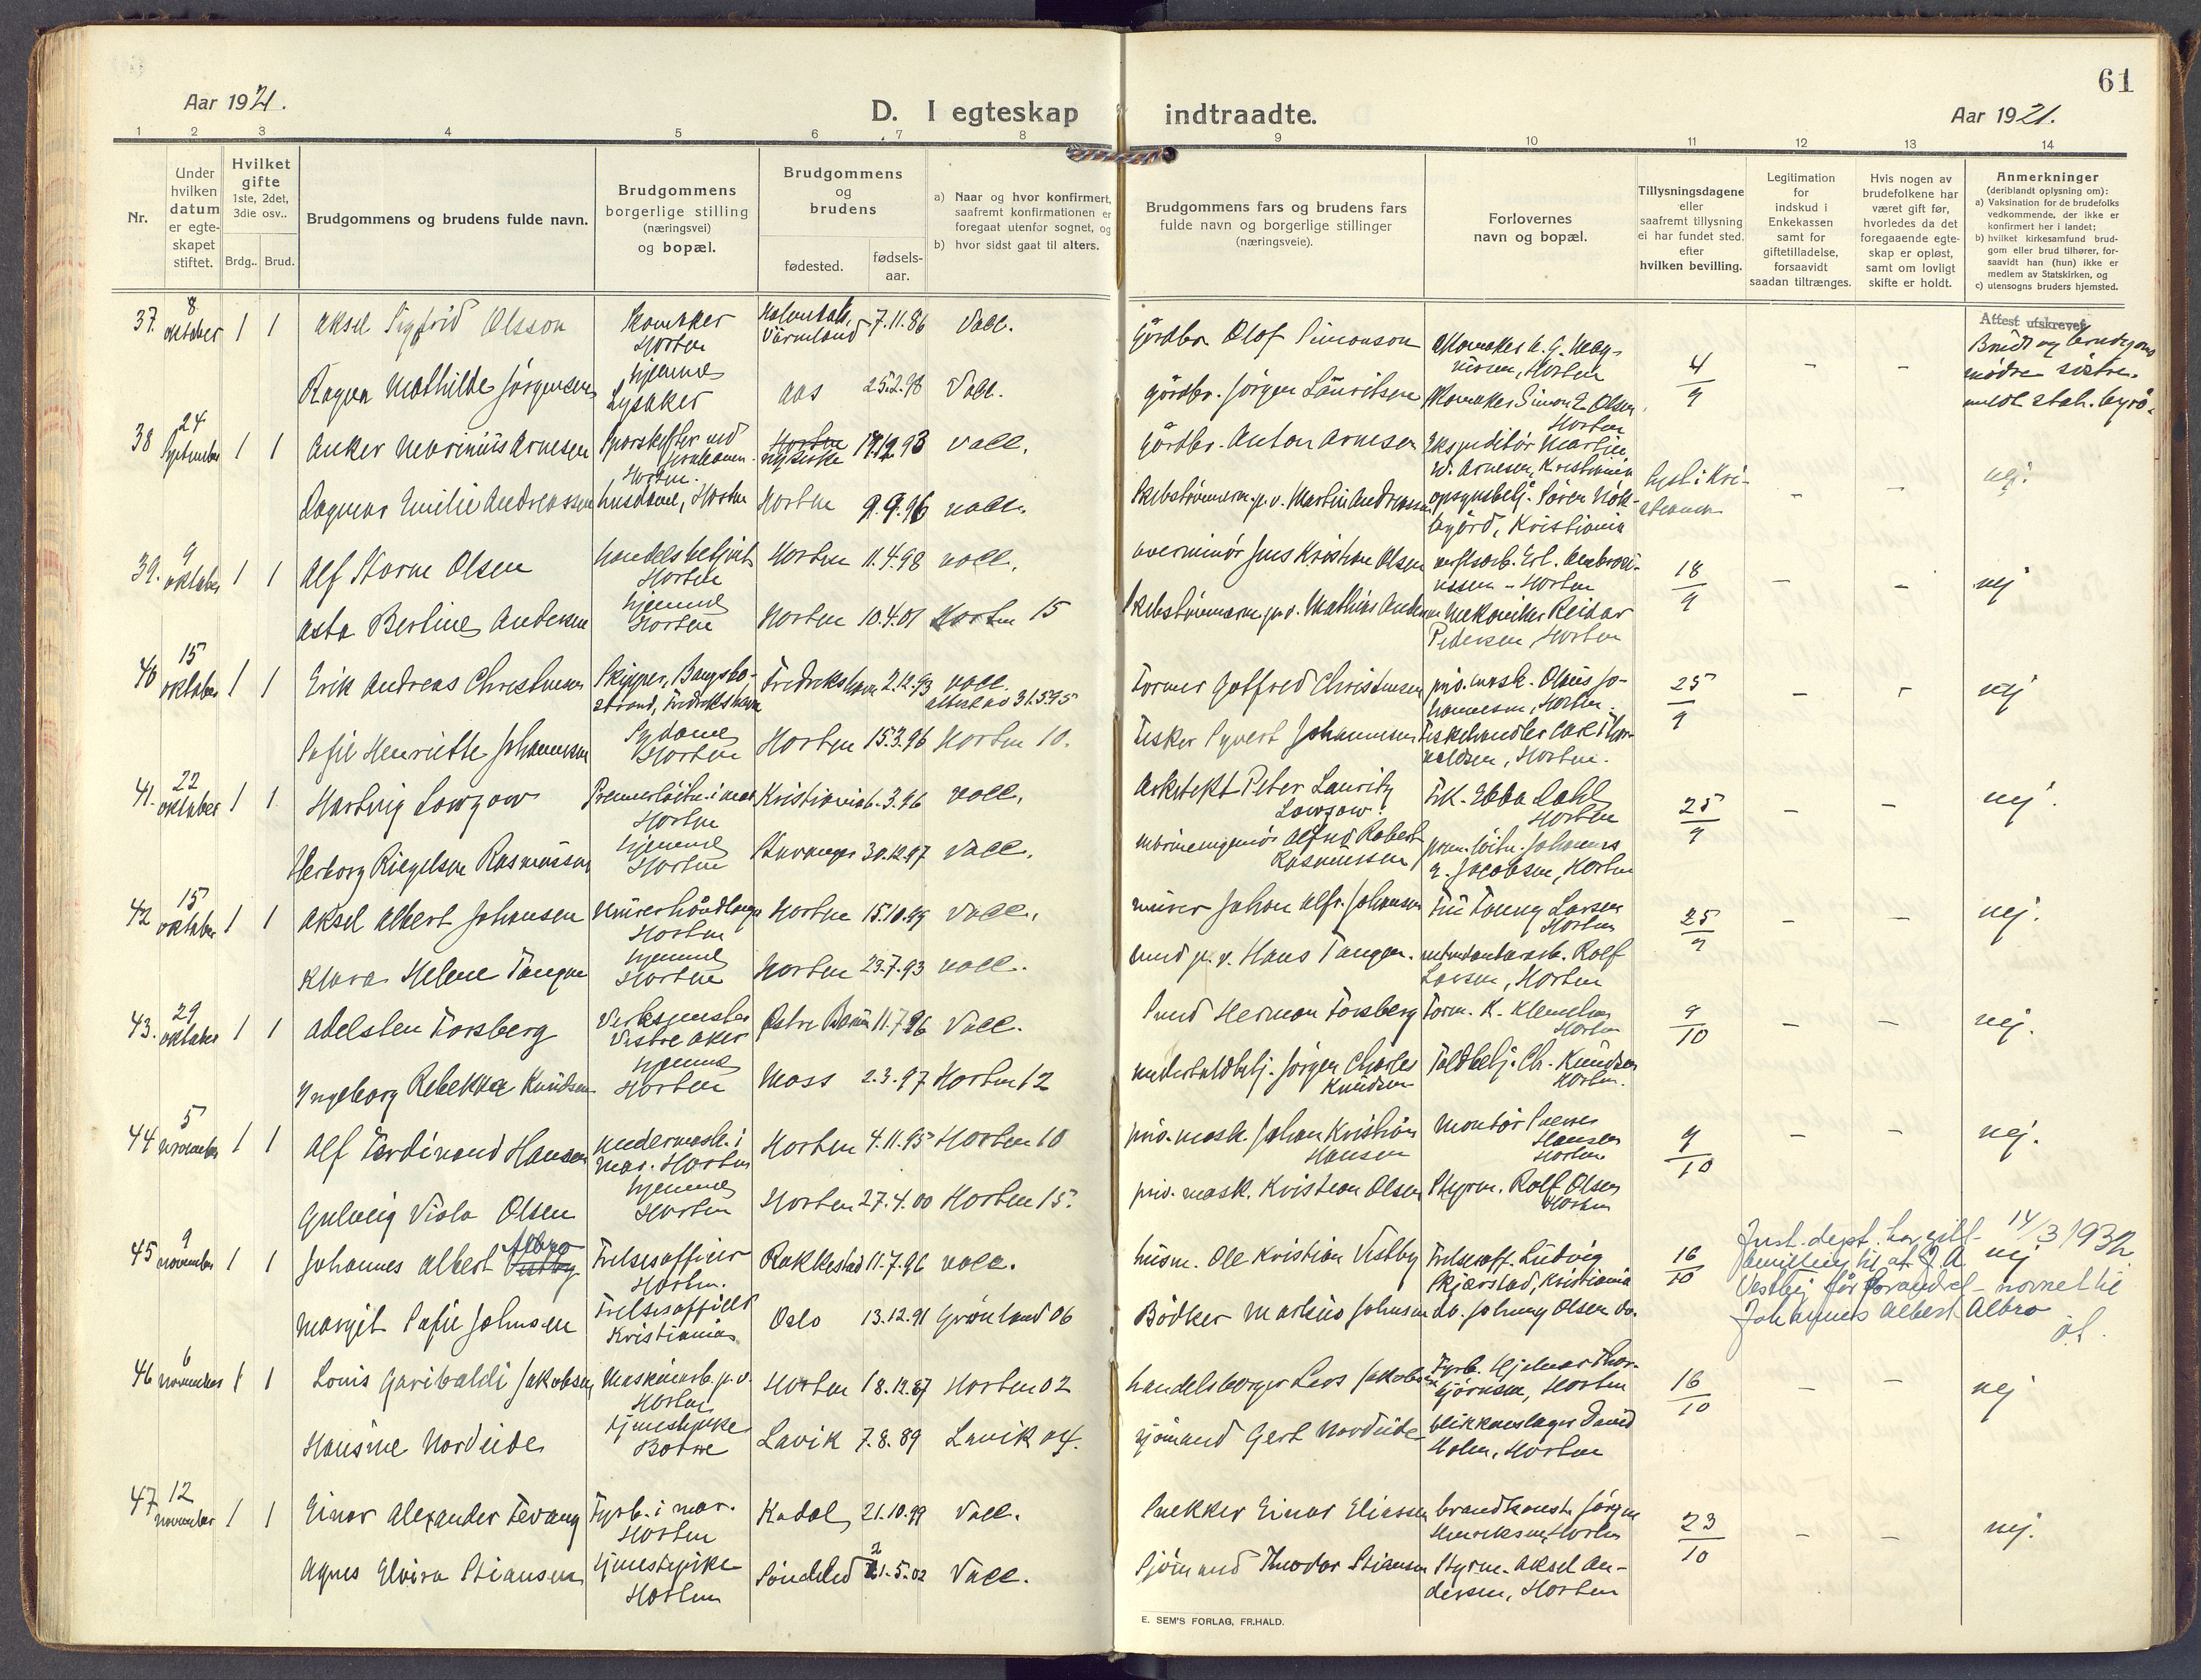 61
Aar 1921.
D. I egteskap indtraadte.
Aar 1921.
1 2 3 4 5 6 7 8 9 10 11 12 13 14
Nr.
Under
hvilken
datum
er egte-
skapet
stiftet.
Hvilket
gifte
1ste, 2det,
3die osv..
Brdg.. Brud.
Brudgommens og brudens fulde navn.
Brudgommens
borgerlige stilling
(næringsvei)
og bopæl.
Brudgommens
og
brudens
fødested.
fødsels-
aar.
a) Naar og hvor konfirmert,
saafremt konfirmationen er
foregaat utenfor sognet, og
b) hvor sidst gaat til alters.
Brudgommens fars og brudens fars
fulde navn og borgerlige stillinger
(næringsveie).
Forlovernes
navn og bopæl.
Tillysningsdagene
eller
saafremt tillysning
ei har fundet sted,
efter
hvilken bevilling.
Legitimation
for
indskud i
Enkekassen
samt for
giftetilladelse,
forsaavidt
saadan tiltrænges.
Hvis nogen av
brudefolkene har
været gift før,
hvorledes da det
foregaaende egte-
skap er opløst,
samt om lovligt
skifte er holdt.
Anmerkninger
(deriblandt oplysning om):
a) Vaksination for de brudefolks
vedkommende, der ikke er
konfirmert her i landet;
b) hvilket kirkesamfund brud-
gom eller brud tilhører, for-
saavidt han (hun) ikke er
medlem av Statskirken, og
c) utensogns bruders hjemsted.
37. 8 oktober 1 1 Aksel Sigfrid Olsson
Horten
Värmland 7.11.86 Vacc.
Gårdbr Olof Simonson
Horten
4/9 - -
Attest utskrevet
Ragna Mathilde Jörgensen
hjemme
Lysaker
Aas 25.2.98 Vacc.
gårdbr. Jörgen Lauritsen
Simon E. Olsen,
Horten
38 24 September 1 1 Anker Marinius Arnesen
Horten.
Horten
Nykirke 17.12.93 vacc.
Gårdbr. Anton Arnesen
Ekspeditör Martin
W. Arnesen, Kristiania
Lyst i Kri-
stiania
- - nej.
Dagmar Emilie Andreassen
husdame, Horten
Horten 9.9.96 vacc.
Skibstömmerm. p.v. Martin Andreassen
opsynsbetj. Sören
Kristiania
39. 9 oktober 1 1 Alf Storm Olsen
handelsbetjent
Horten
Horten 11.4.98 vacc.
overminör Jens Kristian Olsen
Horten
18/9 - - nej
Asta Bertine Andersen
hjemme
Horten
Horten 10.4.01 Horten 15
Skibstömmerm. p.v. Mathias Andersen
Mekaniker Reidar
Pedersen, Horten
40 15 oktober 1 1 Erik Andreas Christensen
Skipper, Bangsbo-
strand, Fredrikshavn
Fredrikshavn 2.12.93 vacc.
Former Gotfred Christensen
priv. mask. Olaus Jo-
hannesen, Horten.
25/9 - - nej
Sofie Henriette Johannesen
Sydame
Horten
Horten 15.3.96 Horten 10.
Fisker Syvert Johannesen
Fiskehandler Carl Thor-
valdsen, Horten.
41. 22 oktober 1 1 Hartvig Lowzow
Premierlöitn. i mar.
Horten
Kristiania 6.3.96 vacc.
Arkitekt Peter Lauritz
Lowzow.
Frk. Ebba Dahl
Horten
25/9 - - nej.
Herborg Riegelsen Rasmussen
hjemme
Horten
Stavanger 30.12.97 Vacc.
marineingeniör Alfred Robert
Rasmussen
prem. löitn. Johannes
E. Jacobsen, Horten
42 15 oktober 1 1 Aksel Albert Johansen
Murerhåndlanger
Horten
Horten 15.10.99 Vacc.
murer Johan Alfr. Johansen
Fru Fanny Larsen
Horten
25/9 - - nej.
Klara Helene Tangen
hjemme
Horten
Horten 23.7.93 vacc.
p.v. Hans Tangen.
Rolf
Larsen, Horten
43. 29 oktober 1 1 Adelsten Forsberg
Verksmester
Vestre Aker
Östre Bærum 11.7.96 Vacc.
Herman Forsberg
Form. K. Klemetsen
Horten
9/10 - - nej.
Ingeborg Rebekka Knudsen
hjemme
Horten
Moss 2.3.97 Horten 12
undertoldbetj. Jörgen Charles
Knudsen
Toldbetj. Ch. Knudsen
Horten.
44 5 november 1 1 Alf Ferdinand Hansen
undermask. i
mar. Horten
Horten 4.11.95 Horten 10
priv. mask. Johan Kristian
Hansen
Montör Sverre
Hansen
Horten
9/10 - - nej.
Gulveig Viola Olsen
hjemme
Horten
Horten 27.4.00 Horten 15.
priv. mask. Kristian Olsen
Styrm. Rolf Olsen
Horten
45 9 november 1 1 Johannes Albert Vestby Albro
Frelsesofficer
Horten.
Rakkestad 11.7.96 vacc.
husm. Ole Kristian Vestby
Frelsesoff. Ludvig
Skjærstad, Kristiania
16/10
Just. dept. har gitt 14/3 1932
bevilling til at J. A. nej
Vestby får forandret navnet til
Johannes Albert Albro
Margit Sofie Johnsen
Frelsesofficer
Kristiania
Oslo 13.12.91 Grönland 06
Bödker Markus Johnsen
do. Johnny Olsen do.
46 6 november 1 1 Louis Garibaldi Jakobsen
Maskinarb. p.v.
Horten
Horten 18.12.87 Horten 02
handelsborger Lars Jakobsen
Fyrb. Hjalmar Thor-
björnsen, Horten
16/10 - - nej
Hansine Nordeide
tjenestepike
Borre
Lavik 7.8.89 Lavik 04.
sjömand Gert Nordeide
blikkenslager David
Holm, Horten
47 12 november 1 1 Einar Alexander Tevang
Fyrb. i mar.
Horten
Kodal 21.10.99 Vacc.
Snekker Einar Eliassen
brandkonst. Jörgen
Henriksen, Horten
23/10 - - nej.
Agnes Elvira Stiansen
tjenestepike
Horten
Söndeled 21.5.02 Vacc.
Sjömand Theodor Stiansen
Styrm. Aksel An-
dersen, Horten
E. SEM'S FORLAG, FR.HALD.